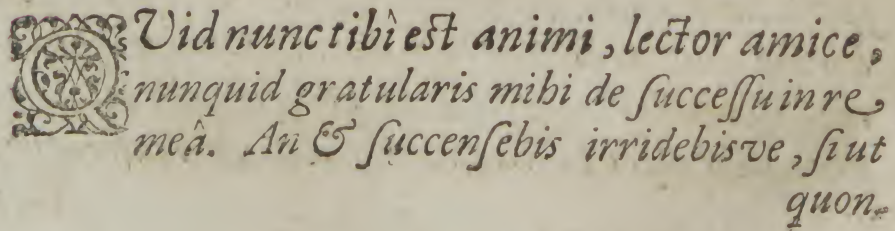 QVid nunc tibi est animi, lector amice,
nunquid gratularis mihi de ſucceſſu in re
meâ. An & ſuccenſebis irridebisve, ſi ut
quon-